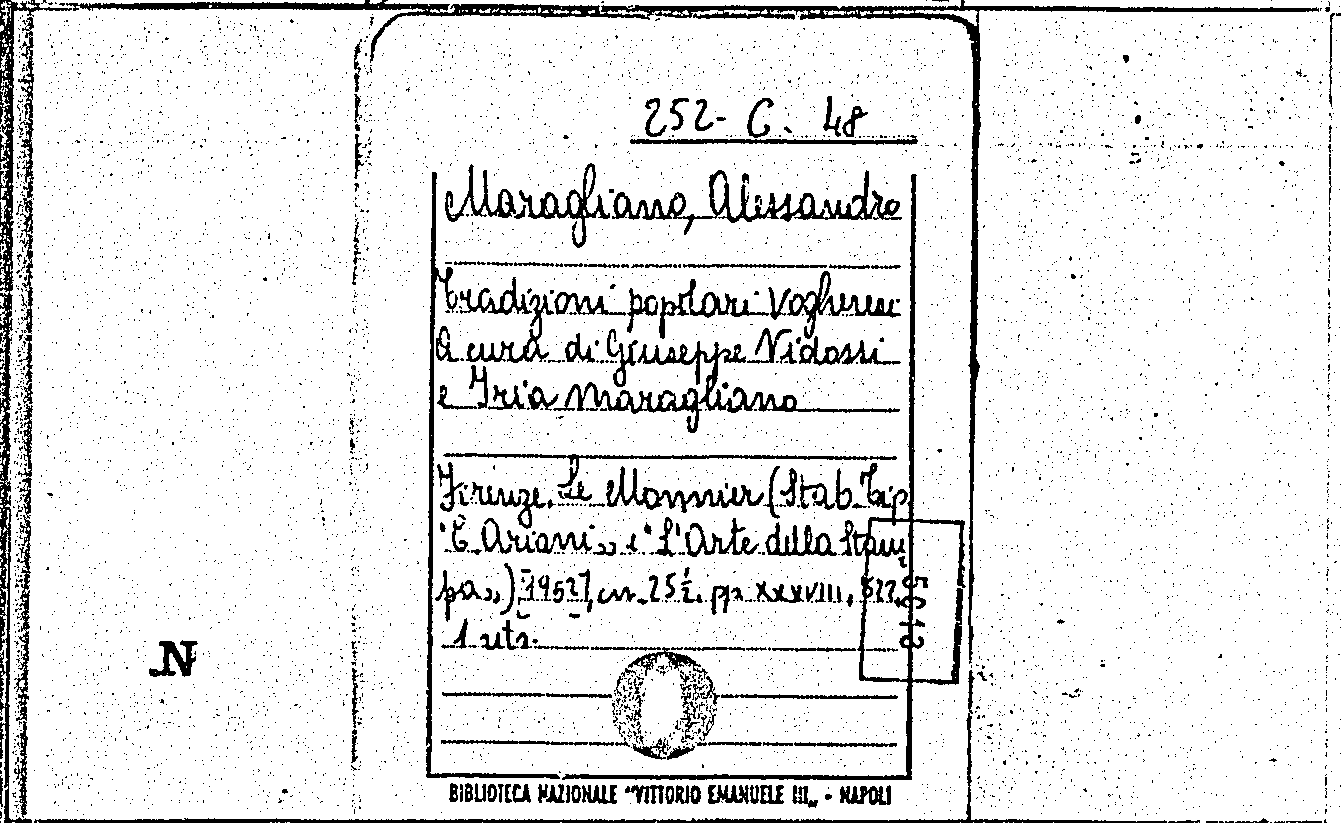 252- C. 48
Maragliano, Alessandro
Tradizioni popolari Vogheresi
A cura di Giuseppe Vidossi
e Iria Maragliano
Firenze. Le Monnier (Stab. Tip.
"E. Ariani„ e "L'Arte della Stam-
pa„) [1952], cm. 25½. pp. XXXVIII, 522,
N
BIBLIOTECA NAZIONALE "VITTORIO EMANUELE III„ - NAPOLI